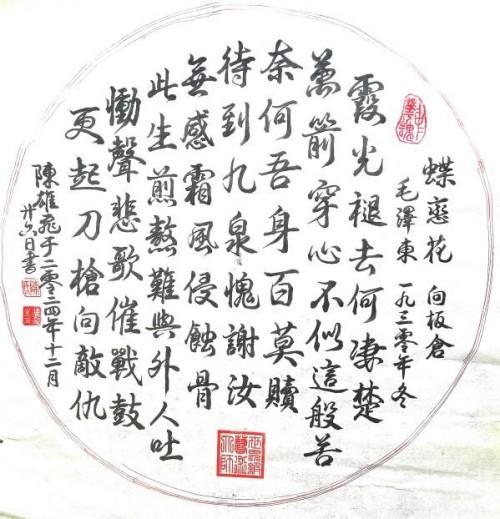 蝶戀花 向板倉
毛澤東 一九三零年冬
霞光褪去何凄楚
萬箭穿心不似這般苦
奈何吾身百莫贖
待到九泉愧謝汝
無感霜風侵蝕骨
此生煎熬難與外人吐
慟聲悲歌催戰鼓
更起刀槍向敵仇
陳雄飛于二零二四年十二月
廿六日書